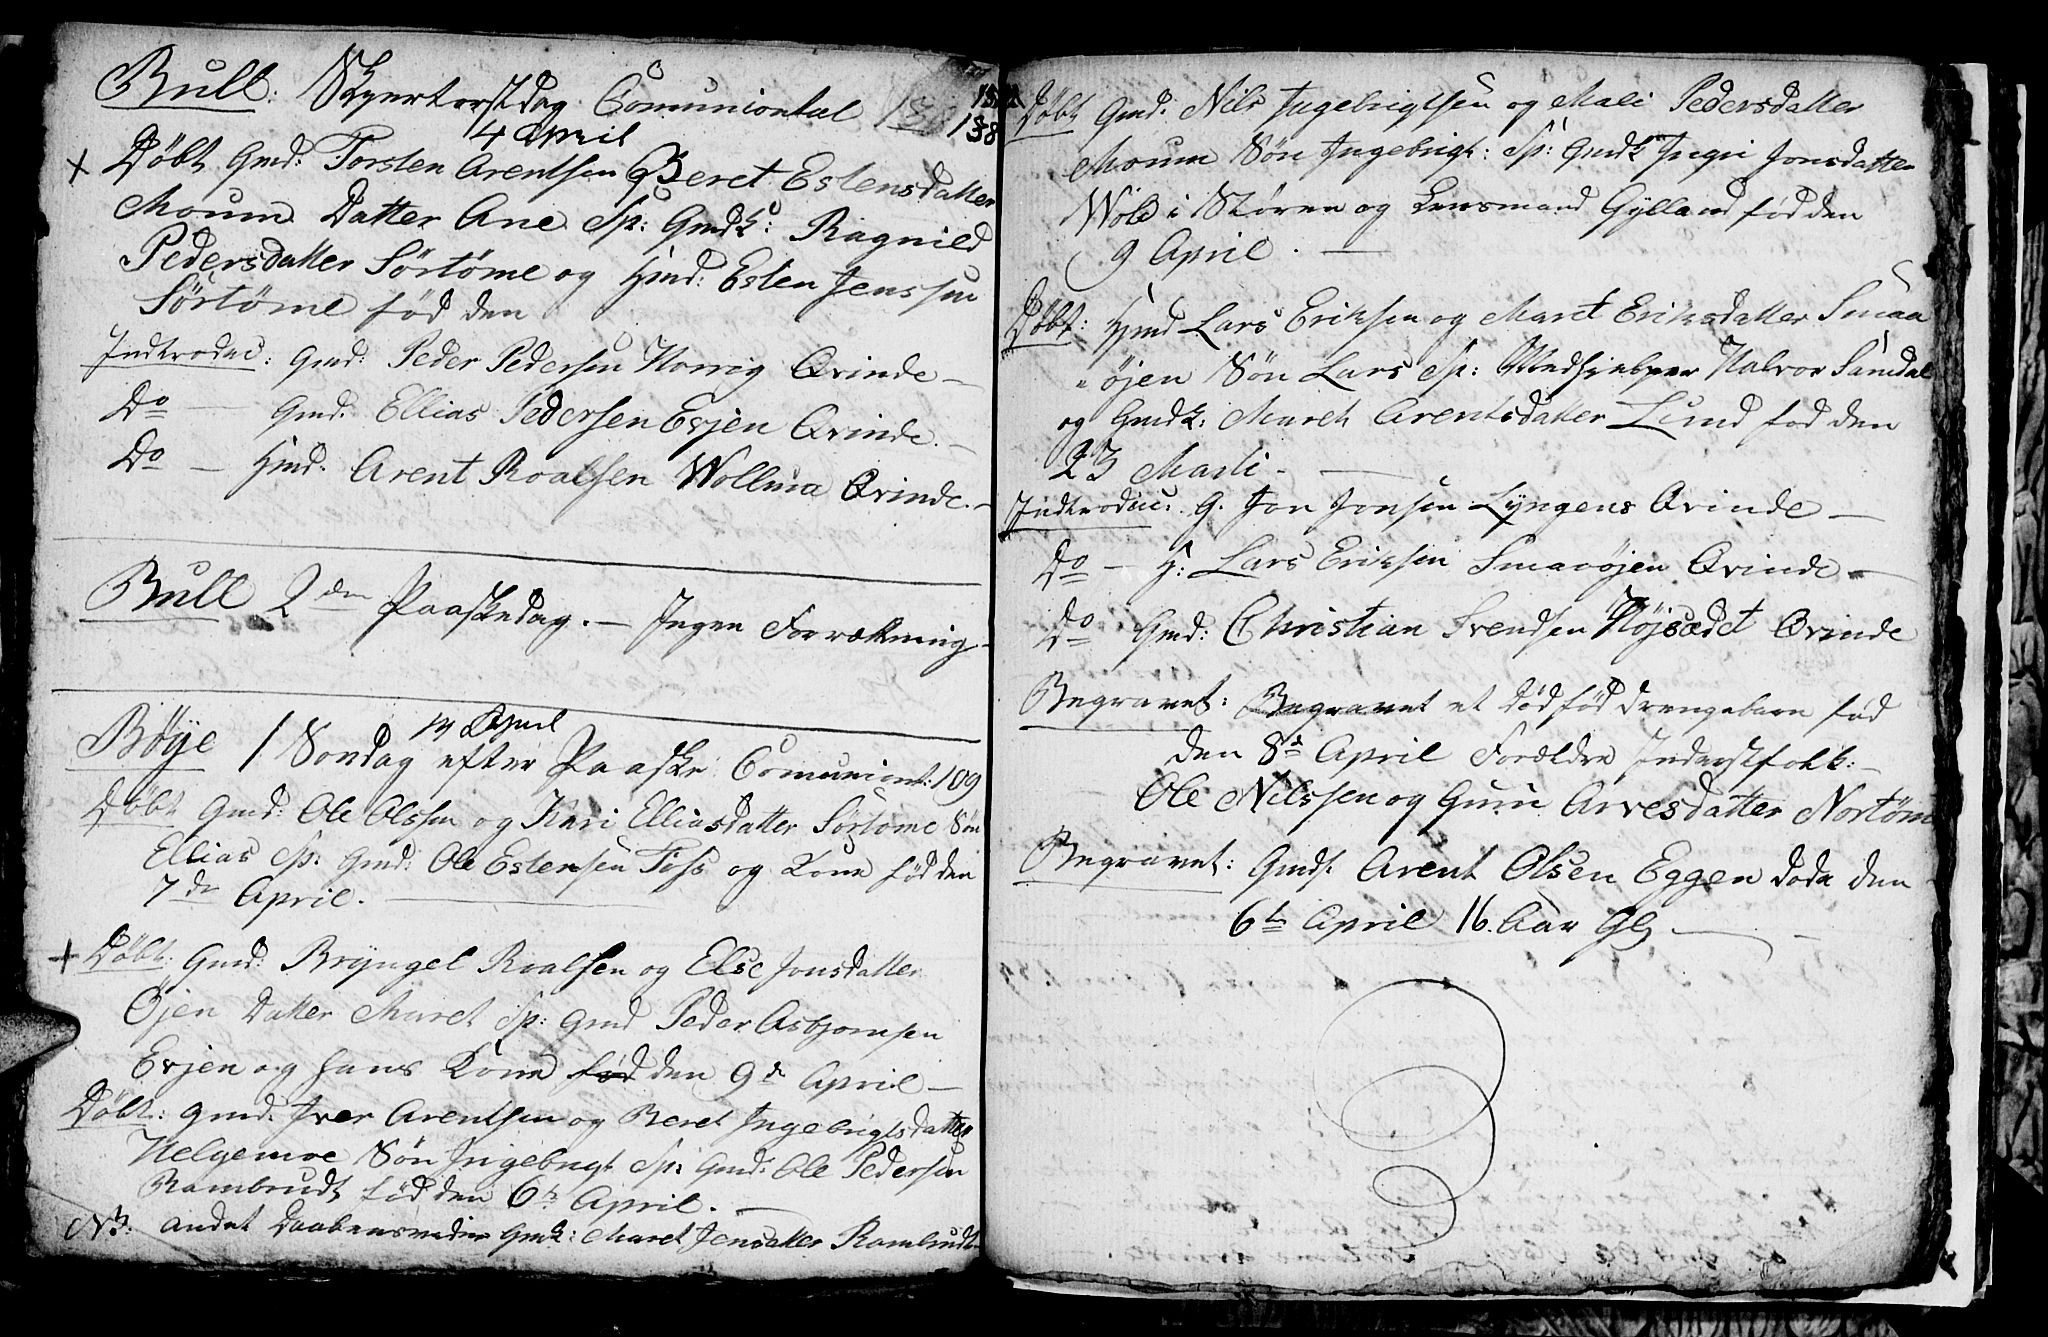 Bull: Skyertorstdag Comuniontal 138
4 April
+ Døbt Gmd: Torsten Arentsen Beret Estensdatter
Moum Datter Ane Sp: Gmdk: Ragnild
Pedersdatter Sørtøme og Hmd: Esten Jenssen
Sørtøme fød den
Indtroduc: Gmd: Peder Pedersen Horrig Qvinde –
Do – Gmd: Ellias Pedersen Evjen Qvinde. –
Do – Hmd: Arent Roalsen Wollma Qvinde. –
Bull 2den Paaskedag. – Ingen Forrætning –
14 April
Bøye 1 Søndag efter Paaske Comuniont: 109
Døbt Gmd: Ole Olssen og Kari Elliasdatter Sørtome Søn
Ellias Sp: Gmd: Ole Estensen Foss og Kone fød den
7de April. –
+ Døbt: Gmd: Bryngel Roalsen og Else Jonsdatter
Øjen Datter Maret Sp: Gmd Peder Asbjornsen
Evjen og hans Kone fød den 9de April –
Døbt: Gmd. Iver Arentsen og Beret Ingebrigtsdatter
Helgemoe Søn Ingebrigt Sp: Gmd: Ole Pedersen
Rambrudt fød den 6te April. –
NB: andet Daabensvidne Gmk: Maret Jensdatter Rambrudt
Døbt Gmd: Nils Ingebrigtsen og Mali Pedersdatter
Moum Søn Ingebrigt: Sp: Gmdk Ingri Jonsdatter
Wold i Støren og Lensmand Gylland fød den
9 April. –
Døbt: Hmd Lars Eriksen og Maret Eriksdatter Smaa
øjen Søn Lars Sp: Medhielper Halvor Samdal
og Gmdk: Mareth Arentsdatter Lund fød den
23 Marti. –
Indtroduc: G. Jon Jonsen Lyngens Qvinde –
Do – H: Lars Eriksen Smaaøjen Qvinde –
Do Gmd: Christian Svendsen Højsædet Qvinde
Begravet: Begravet et dødfød drengebarn fød
den 8de April Forældre Inderstfolk: –
Ole Nilssen og Guru Arvesdatter Nortøm
Begravet: Gmds. Arent Olsen Eggen døde den
6te April 16. Aar Gl –